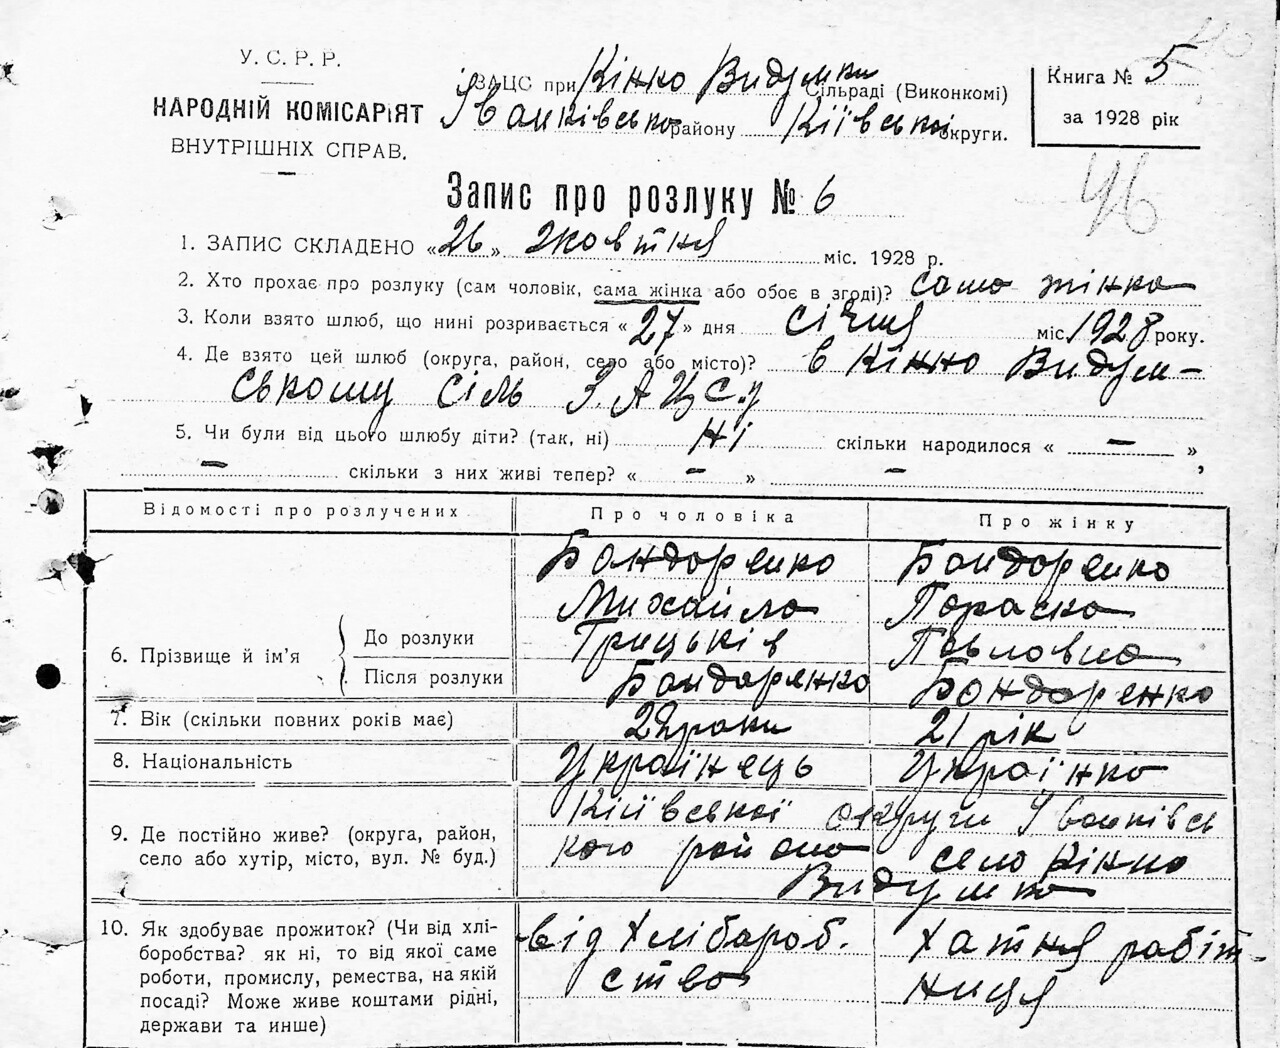 У. С. Р. Р.
НАРОДНІЙ КОМІСАРІЯТ
ВНУТРІШНІХ СПРАВ.
ЗАЦС при Кінко Видумки Сільраді (Виконкомі)
Іванківсько району Київської округи.
Книга № 5
за 1928 рік
46
Запис про розлуку № 6
1. ЗАПИС СКЛАДЕНО «26» жовтня міс. 1928 р.
2. Хто прохає про розлуку (сам чоловік, сама жінка або обоє в згоді)? сама жінка
3. Коли взято шлюб, що нині розривається «27» дня січня міс. 1928 року.
4. Де взято цей шлюб (округа, район, село або місто)? в Кінко Видум-
ському сіль З.А.Ц.С.у
5. Чи були від цього шлюбу діти? (так, ні) Ні скільки народилося « — »
— скільки з них живі тепер? « — » — ,
Відомості про розлучених Про чоловіка Про жінку
6. Прізвище й ім'я
До розлуки
Після розлуки
Бондаренко
Михайло
Грицьків
Бондаренко
Бондаренко
Параска
Павловна
Бондаренко
7. Вік (скільки повних років має) 22 роки 21 рік
8. Національність Українець Українка
9. Де постійно живе? (округа, район,
село або хутір, місто, вул. № буд.)
Київської округи Іванківсь
кого району село Кінко
Видумка
10. Як здобуває прожиток? (Чи від хлі-
боробства? як ні, то від якої саме
роботи, промислу, ремества, на якій
посаді? Може живе коштами рідні,
держави та инше)
від Хлібароб.
ства
Хатня рабіт-
ниця